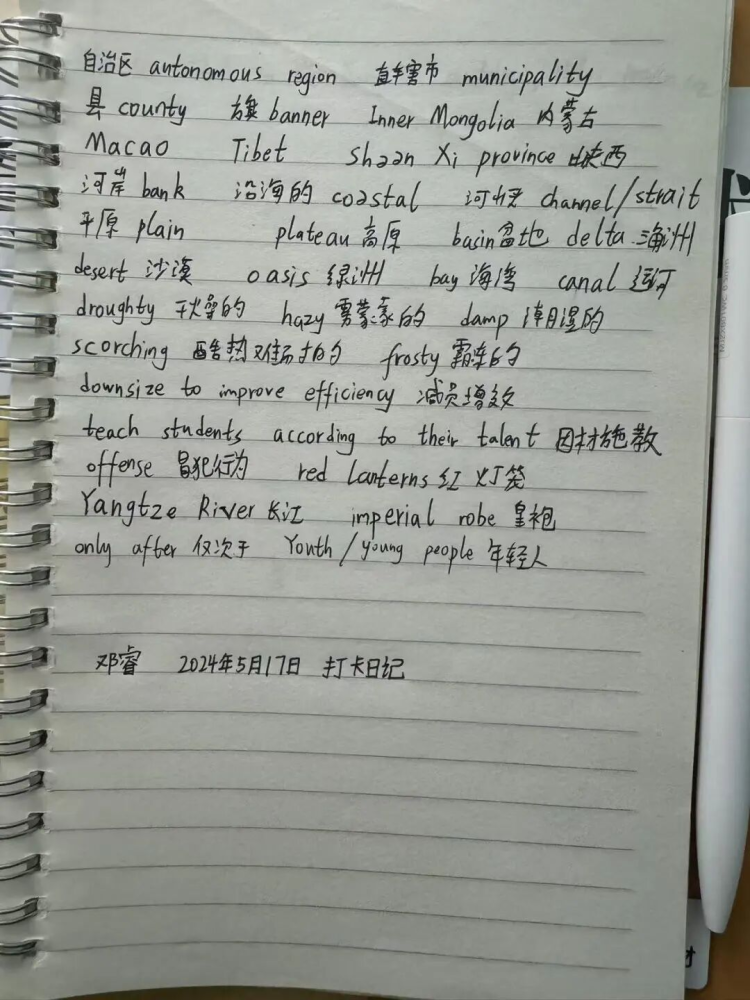 自治区 autonomous region 直辖市 municipality
县 county 旗 banner Inner Mongolia 内蒙古
Macao Tibet Shaan Xi province 陕西
河岸 bank 沿海的 coastal 河峡 channel/strait
平原 plain plateau 高原 basin 盆地 delta 三角洲
desert 沙漠 oasis 绿洲 bay 海湾 canal 运河
droughty 干燥的 hazy 雾蒙蒙的 damp 潮湿的
scorching 酷热难揚的 frosty 霜冻的
downsize to improve efficiency 减员增效
teach students according to their talent 因材施教
offense 冒犯行为 red lanterns 红灯笼
Yangtze River 长江 imperial robe 皇袍
only after 仅次于 Youth/young people 年轻人
邓睿 2024年5月17日 打卡日记